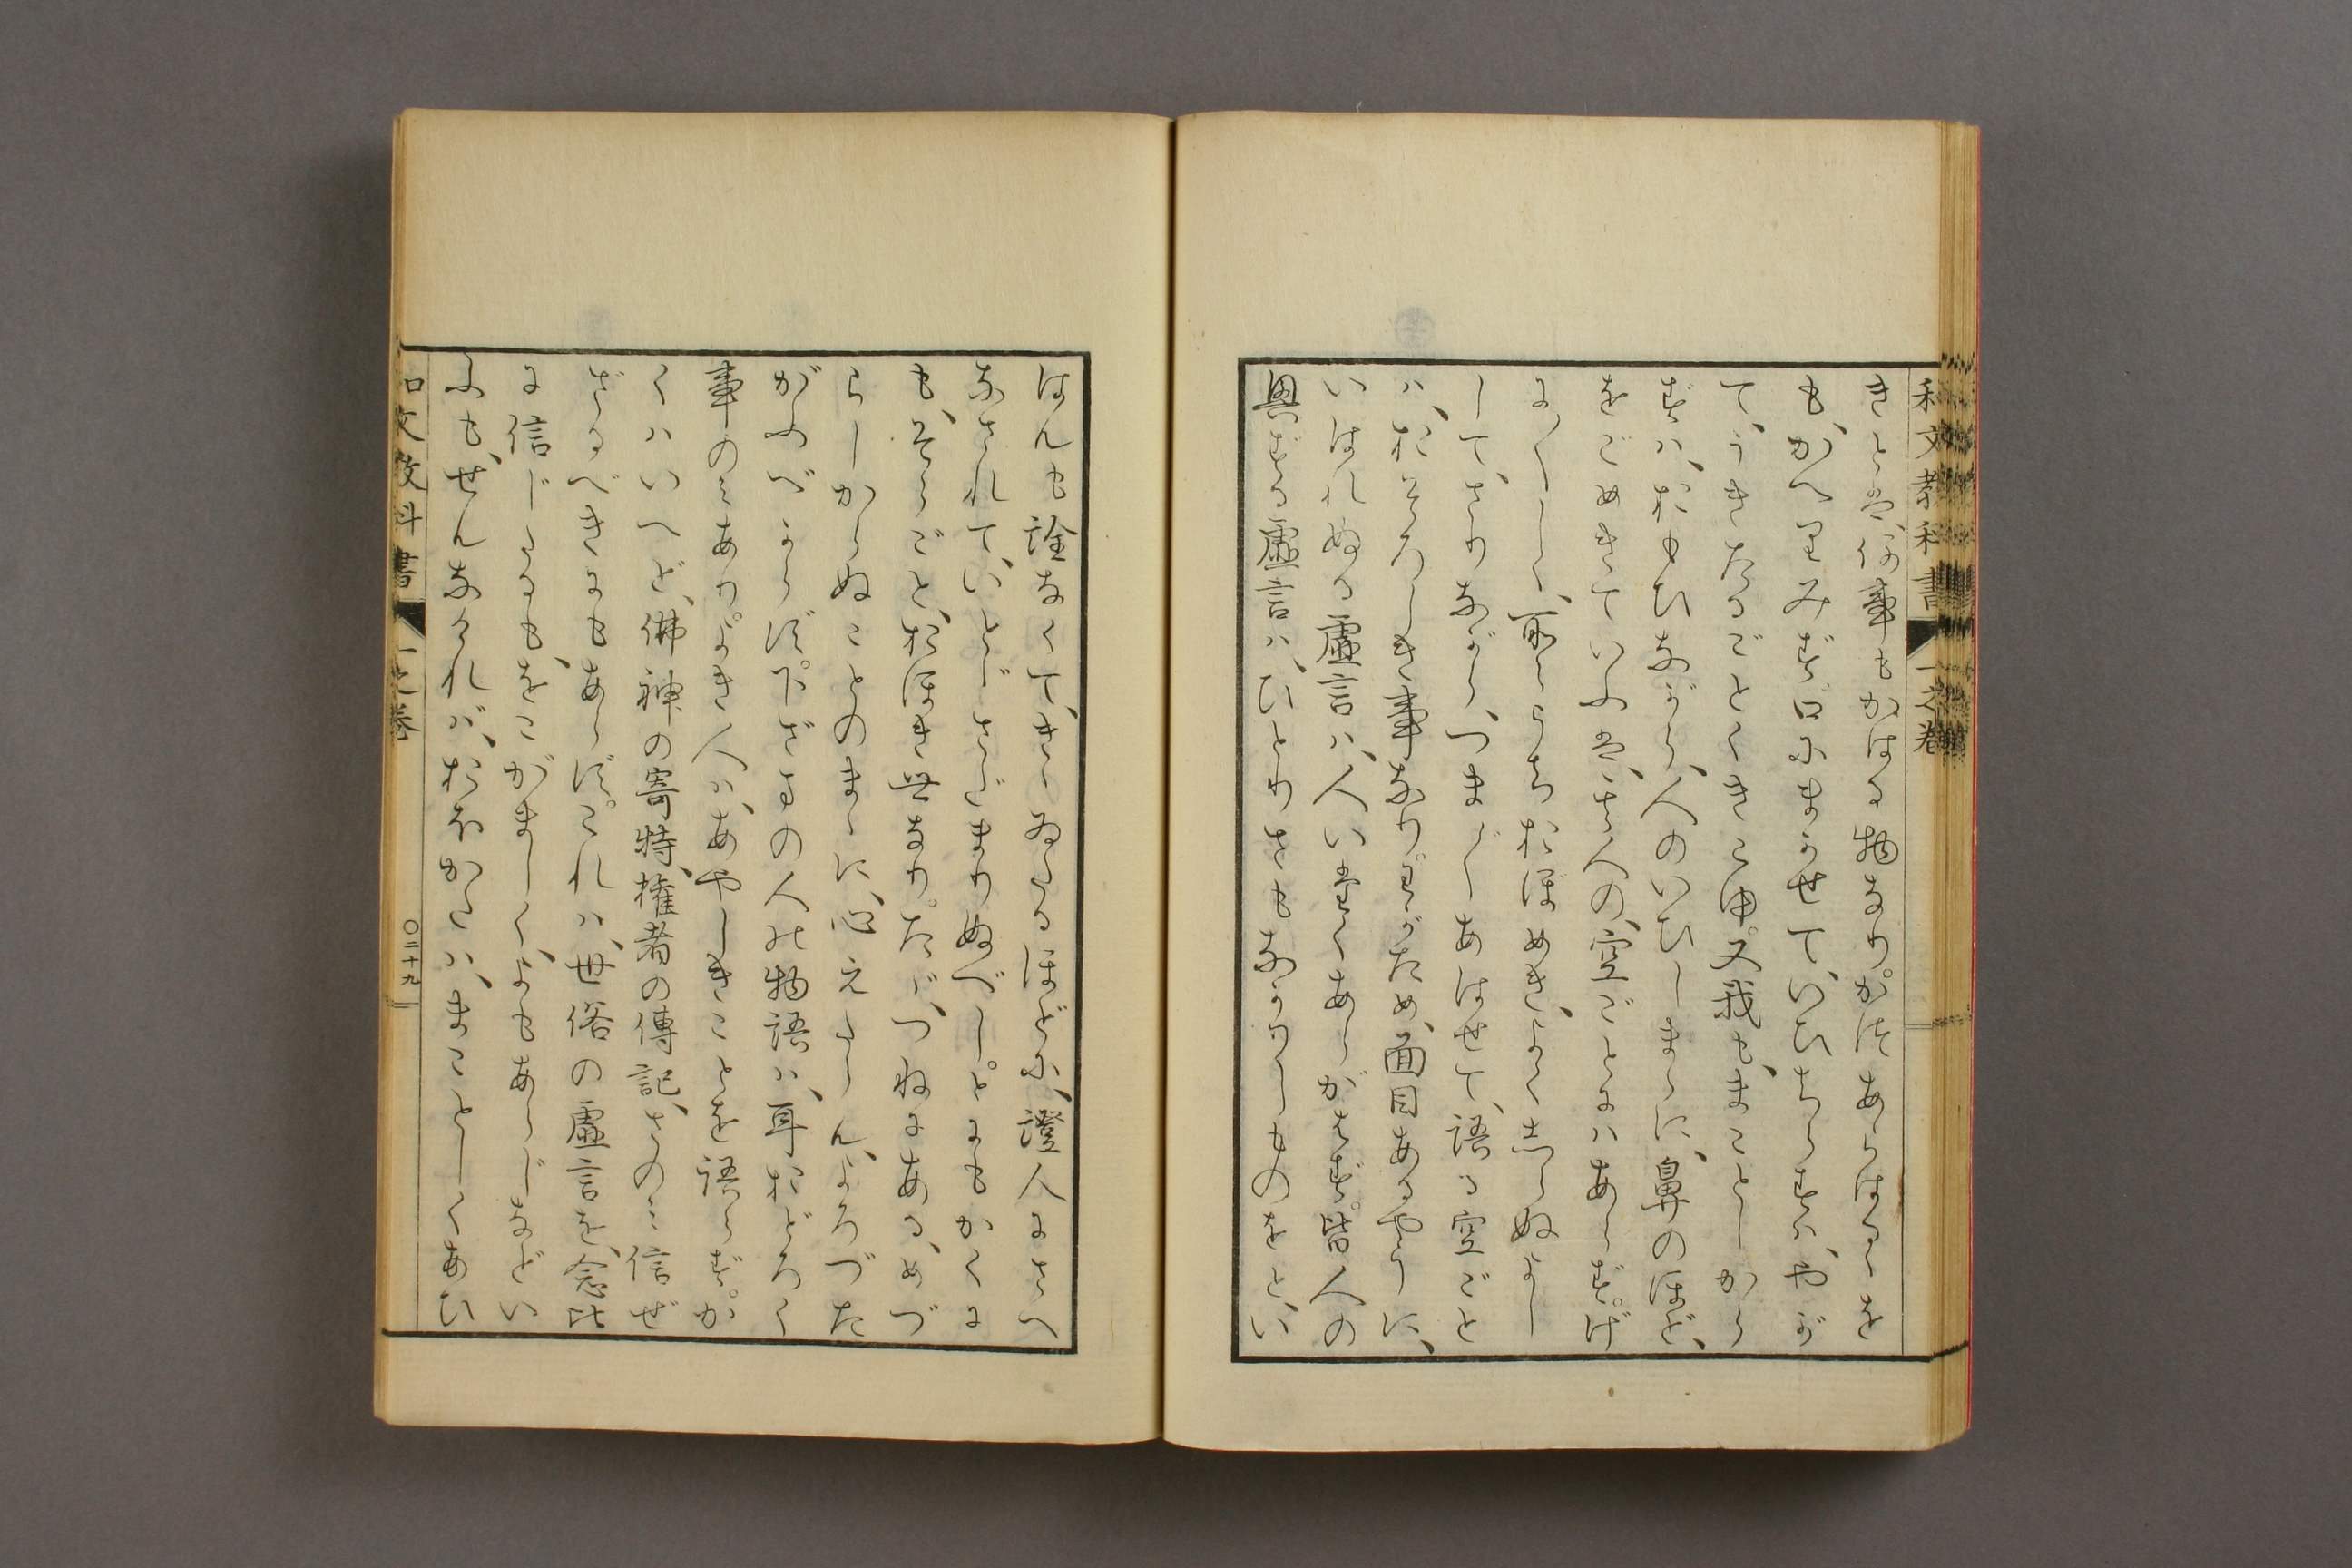 和文教科書 一之卷
きとき、何事もかはる物なり。かつあらはるゝを
も、かへりみず、口にまかせて、いひちらすは、やが
て、うきたることゝきこゆ。又我も、まことしから
ずは、おもひながら、人のいひしまゝに、鼻のほど、
をごめきていふは、その人の、空ごとにはあらず。げ
にゝしく、所々うちおぼめき、よくしらぬよし
して、さりながら、つまゞゝあはせて、語る空ごと
は、おそろしき事なり。わがため、面目あるやうに、
いはれぬる虚言は、人いたくあらがはず。皆人の
興ずる虚言は、ひとりさもなかりしものをと、い
はんも詮なくて、きゝゐたるほどに、證人にさへ
なされて、いとゞさだまりぬべし。とにもかくに
も、そらごと、おほき世なり。たゞ、つねにある、めづ
らしからぬことのまゝに、心えたらん、よろづた
がふべからず。下ざまの人の物語は、耳おどろく
事のみあり。よき人は、あやしきことを語らず。か
くはいへど、佛神の寄特、權者の傳記、さのみ信ぜ
ざるべきにもあらず。これは、世俗の虚言を、念比
に信じたるも、をこがましく、よもあらじなどい
ふも、せんなければ、おほかたは、まことしくあひ
和文教科書 一之卷 〇二十九